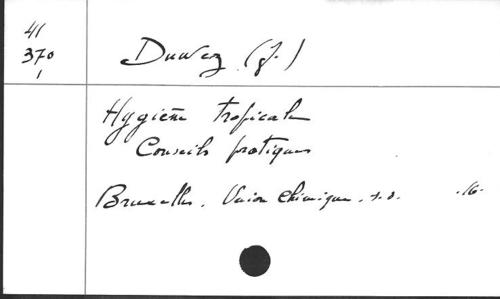 41
370
1
Duwez (J.)
Hygiène tropicale
Conseils pratiques
Bruxelles. Union Chimique. s.d. .16.